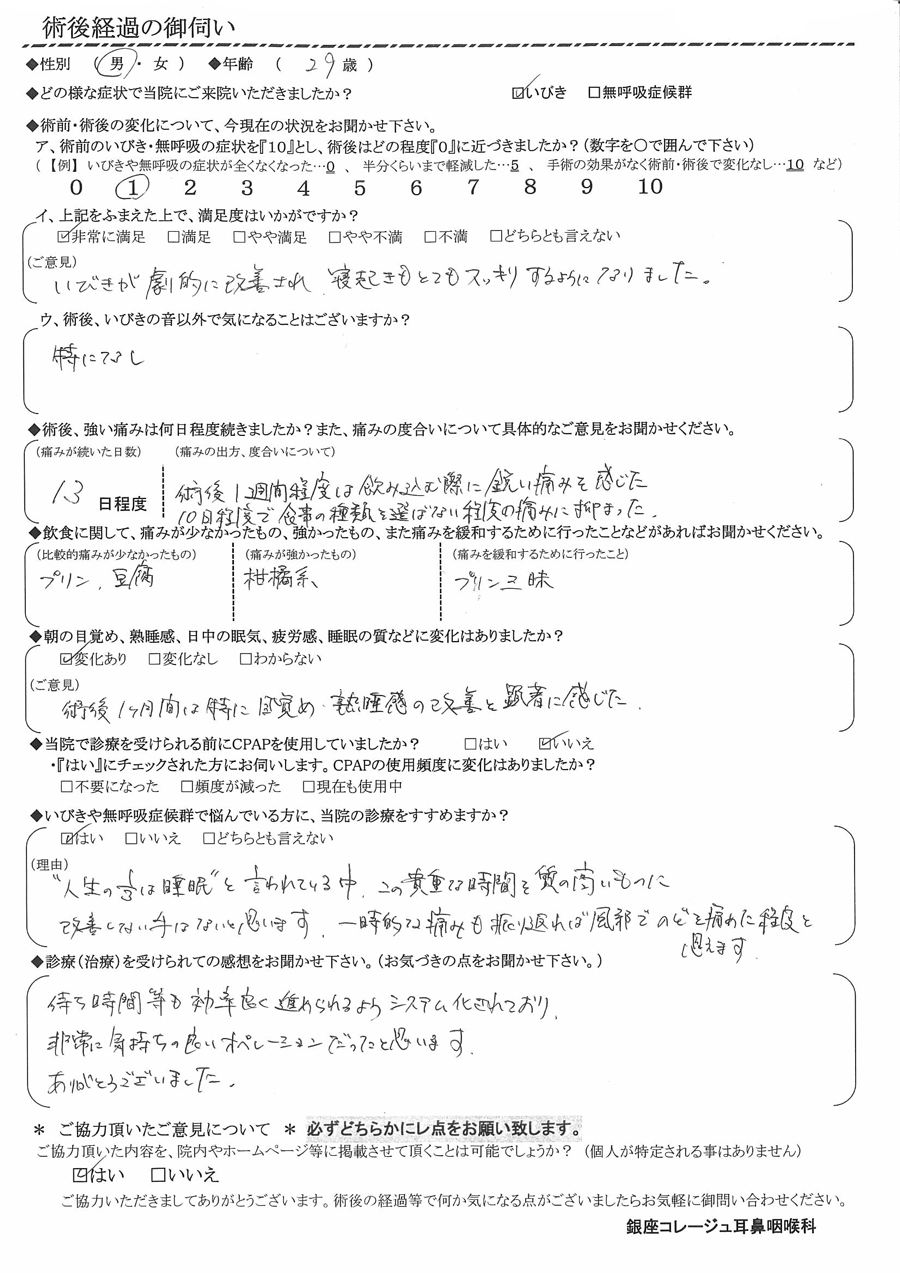 術後経過の御伺い
◆性別 （ 男 ・ 女 ） ◆年齢 （ 29 歳 ）
◆どの様な症状で当院にご来院いただきましたか？ ☑いびき □無呼吸症候群
◆術前・術後の変化について、今現在の状況をお聞かせ下さい。
ア、術前のいびき・無呼吸の症状を『10』とし、術後はどの程度『0』に近づきましたか？（数字を○で囲んで下さい）
（【例】 いびきや無呼吸の症状が全くなくなった…0 、 半分くらいまで軽減した…5 、 手術の効果がなく術前・術後で変化なし…10 など）
0 1 2 3 4 5 6 7 8 9 10
イ、上記をふまえた上で、満足度はいかがですか？
☑非常に満足 □満足 □やや満足 □やや不満 □不満 □どちらとも言えない
（ご意見）
いびきが劇的に改善され、寝起きもとてもスッキリするようになりました。
ウ、術後、いびきの音以外で気になることはございますか？
特になし
◆術後、強い痛みは何日程度続きましたか？また、痛みの度合いについて具体的なご意見をお聞かせください。
（痛みが続いた日数） （痛みの出方、度合いについて）
13 日程度 術後1週間程度は飲み込む際に鋭い痛みを感じた
10日程度で食事の種類を選ばない程度の痛みに抑まった.
◆飲食に関して、痛みが少なかったもの、強かったもの、また痛みを緩和するために行ったことなどがあればお聞かせください。
（比較的痛みが少なかったもの） （痛みが強かったもの） （痛みを緩和するために行ったこと）
プリン、豆腐 柑橘系、 プリン三昧
◆朝の目覚め、熟睡感、日中の眠気、疲労感、睡眠の質などに変化はありましたか？
☑変化あり □変化なし □わからない
（ご意見）
術後1ヶ月間は特に目覚め・熟睡感の改善を顕著に感じた.
◆当院で診療を受けられる前にCPAPを使用していましたか？ □はい ☑いいえ
・『はい』にチェックされた方にお伺いします。CPAPの使用頻度に変化はありましたか？
□不要になった □頻度が減った □現在も使用中
◆いびきや無呼吸症候群で悩んでいる方に、当院の診療をすすめますか？
☑はい □いいえ □どちらとも言えない
（理由）
"人生の1/3は睡眠"と言われている中、この貴重な時間を質の高いものに
改善しない手はないと思います. 一時的な痛みも振り返れば風邪でのどを痛めた程度と
思えます.
◆診療（治療）を受けられての感想をお聞かせ下さい。（お気づきの点をお聞かせ下さい。）
待ち時間等も効率良く進められるようシステム化されており、
非常に気持ちの良いオペレーションだったと思います.
ありがとうございました.
＊ ご協力頂いたご意見について ＊ 必ずどちらかにレ点をお願い致します。
ご協力頂いた内容を、院内やホームページ等に掲載させて頂くことは可能でしょうか？ （個人が特定される事はありません）
☑はい □いいえ
ご協力いただきましてありがとうございます。術後の経過等で何か気になる点がございましたらお気軽に御問い合わせください。
銀座コレージュ耳鼻咽喉科